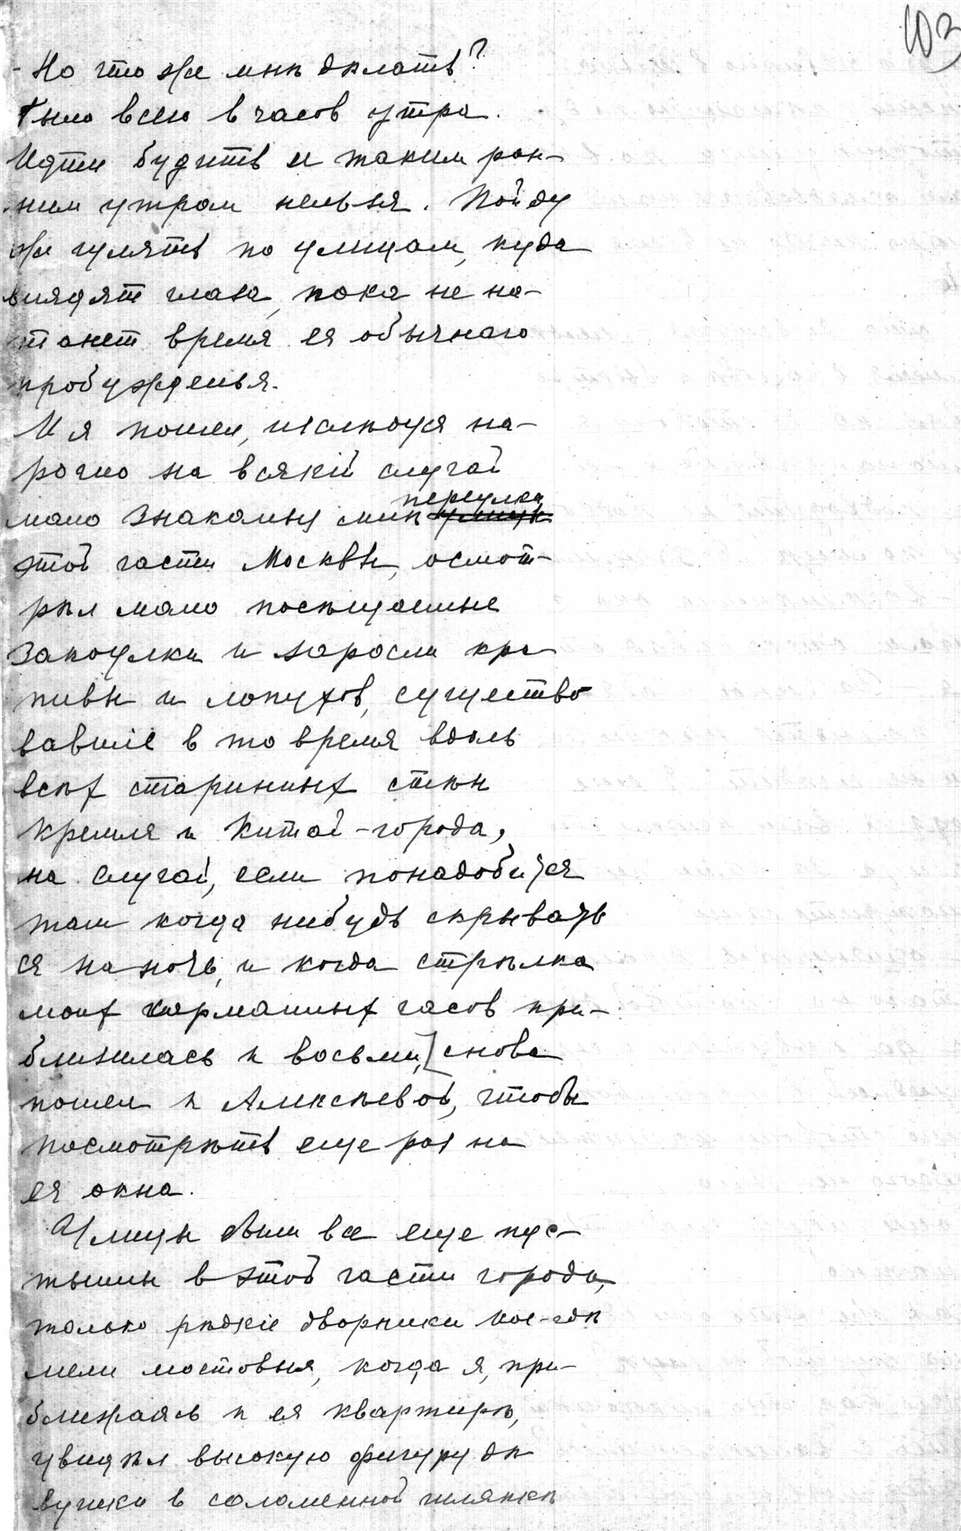 103
- Но что же мнѣ дѣлать?
Было всего 6 часов утра.
Идти будить ее таким ран-
ним утром нельзя. Пойду
же гулять по улицам, куда
глядят глаза, пока не на-
станет время ея обычнаго
пробужденья.
И я пошел, изслѣдуя на-
рочно на всякій случай
мало знакомыя мнѣ переулки
этой части Москвы, осмот-
рѣл мало посѣщаемые
закоулки и заросли кра-
пивы и лопухов, существо
вавшіе в то время вдоль
всѣх старинных стѣн
Кремля и Китай-города,
на случай, если понадобится
там когда нибудь скрывать
ся на ночь, и когда стрѣлка
моих карманных часов при-
близилась к восьми, снова
пошел к Алексѣевой, чтобы
посмотрѣть еще раз на
ея окна.
Улицы были все еще пус-
тынны в этой части города,
только рѣдкіе дворники кое-гдѣ
мели мостовыя, когда я, при-
ближаясь к ея квартирѣ,
увидѣл высокую фигуру дѣ
вушки в соломенной шляпкѣ